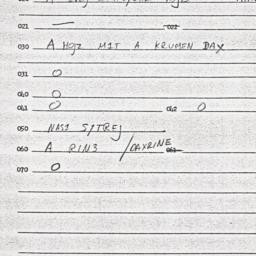 021 — 022
030 A HOJZ MIT A KRUMEN DAX
031 0
040 0
041 0 042 0
050 NASI SJTREJ
060 A RINS /DAXRINE 061
070 0